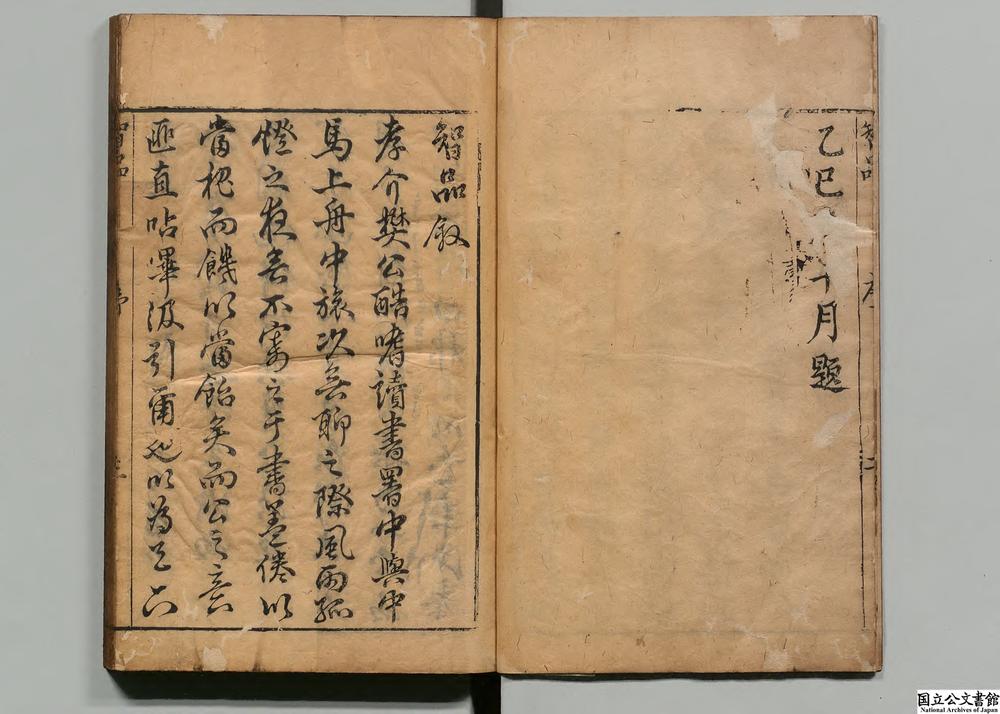 乙巳十月題
智品
序
智品敘
孝介樊公酷嗜讀書署中輿中
馬上舟中旅次無聊之際風雨孤
燈之夜無不寄之于書蓋倦以
當枕而饑以當飴矣而公之意
匪直呫嗶汲引爾也以為
智品
序
国立公文書館
National Archives of Japan